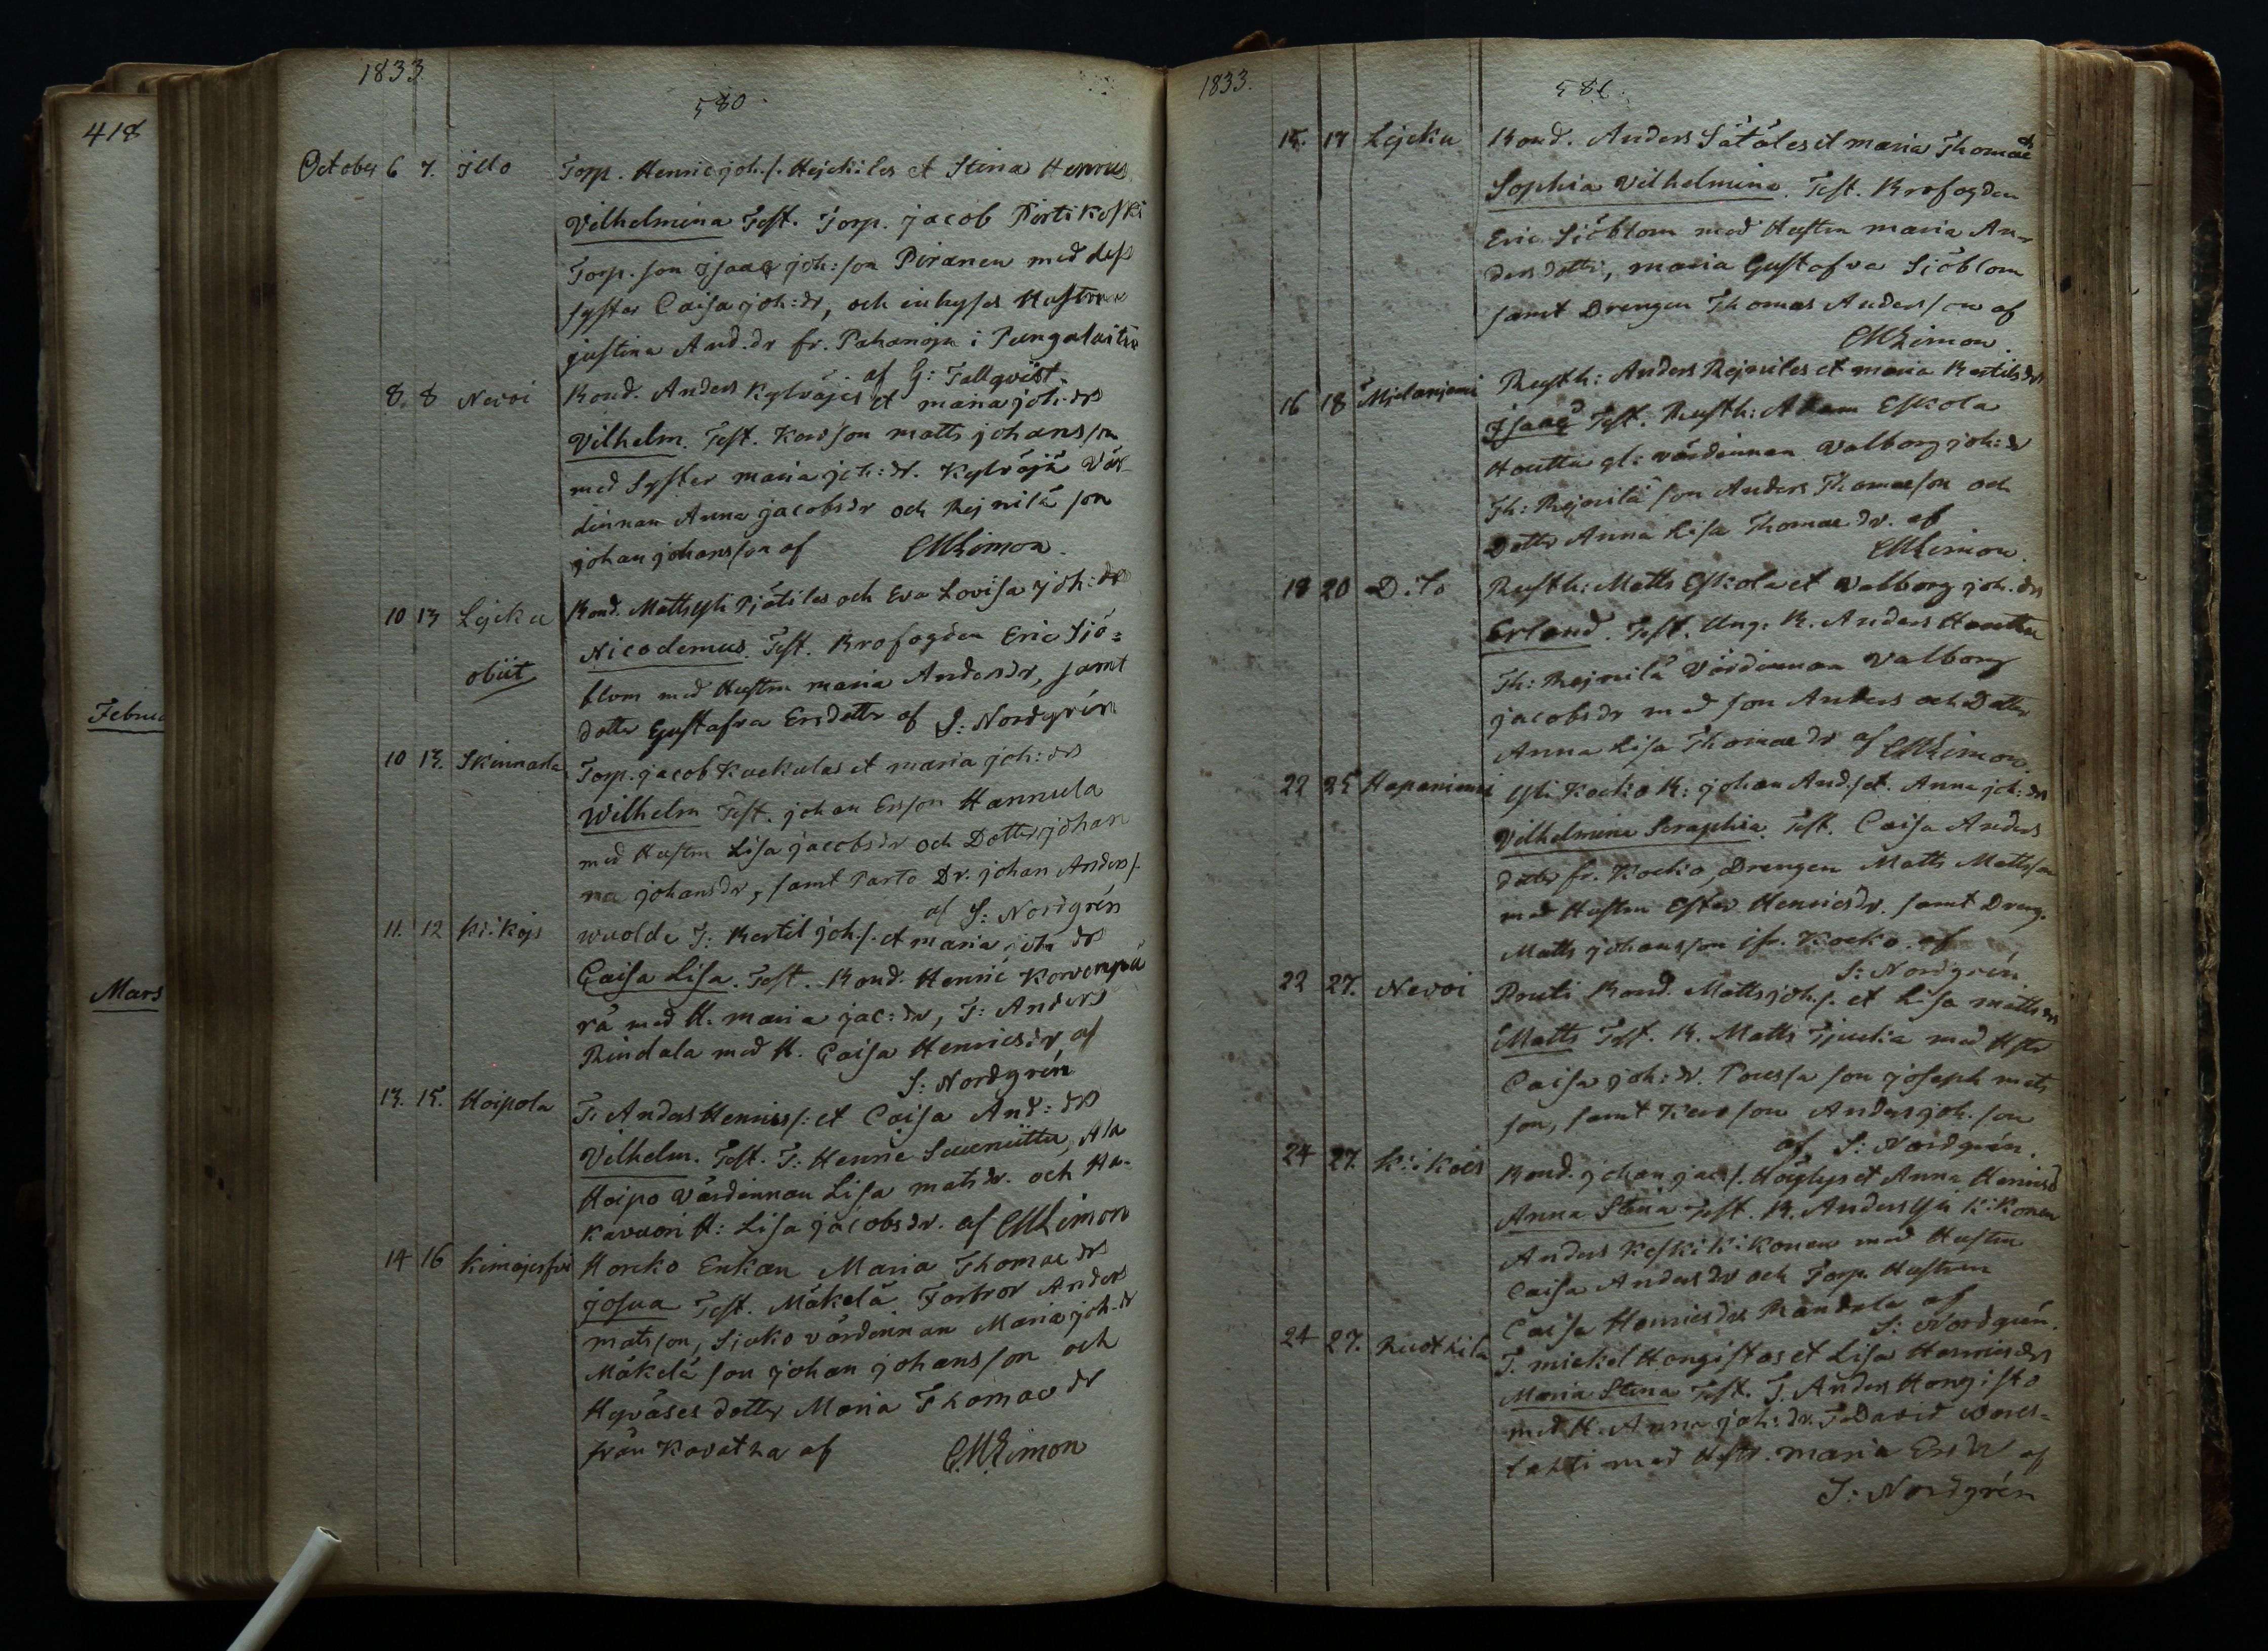 418
Februa
Mars
1833.
580.
October 6 7. Jllo Torp. Henric joh.s. Hejckiles et Stina Henries
Vilhelmina Test. Torp. jacob Pirtikoski
Torp. son Jsaac joh:son Piranen med dess
syster Caisa joh:dr, och inhyses Hustrun
justina And.dr fr. Pahanoja i Pungalaitio
af G: Tallqvist.
8. 8 Nevoi Bond. Anders Kylväjes et maria joh:drs
Vilhelm. Test. Kavo son matts johansson
med Syster maria joh:dr. Kylväjä Vär-
dinnan Anna jacobsdr och Rejnilä son
johan johansson af CMLimon.
10 13 Lejcku Bond. Matts yli Pjätiles och Eva Lovisa joh:drs
obiit
Nicodemus. Test. Brofogden Eric Sjö=
blom med Hustru maria Andersdr, samt
dotter Gustafva Ersdotter af S: Nordgrén
10 13. Skinnarla Torp. jacob Kuckulas et maria joh:drs
Wilhelm Test. johan Ersson Hannula
med Hustru Lisa jacobsdr och Dotter johan
na johansdr, samt Parto Dr. johan Anders s.
af S: Nordgrén
11. 12 Kiikojs wuolde T: Bertil joh.s. et maria joh drs
Caisa Lisa. Test. Bond. Henric Korvenpä
rä med H. maria jac:dr, T: Anders
Rindala med H. Caisa Henricsdr af
S: Nordgrén
13. 15. Hoipola T. Anders Henrics s: et Caisa And:drs
Vilhelm. Test. T: Henric Sauniittu, Ala
Hoipo Värdinnan Lisa matsdr. och Ha-
kavuori H: Lisa jacobsdr. af CMLimon
14 16 Kimajerfvi Horcko Enkan Maria Thomae drs
josua Test. Mäkelä Farbror Anders
matsson, Sjoko värdinnan Maria joh-dr
Mäkelä son johan johansson och
Hyväses dotter Maria Thomae dr
från Kavatha af CMLimon
1833.
581.
15. 17 Lejcku Bond. Anders Sätäles et maria Thomae drs
Sophia Vilhelmina. Test. Brofogden
Eric Sjöblom med Hustru maria An-
dersdotter, maria Gustafva Sjöblom
samt Drengen Thomas Andersson af
CMLimon.
16 18 Mjelanjemi Rusth: Anders Rejniles et maria Bertilsdrs
Jsaac Test. Rusth: Adam Eskola
Houttu gl: värdinnan Valborg joh:dr
Th: Rejnilä son Anders Thomaeson och
Dotter Anna Lisa Thomae dr. af
CMLimon.
18 20 D:to Rusth: Matts Eskola et Valborg joh.drs
Erland. Test. Ung. K. Anders Houttu
Th: Rejnilä Värdinnan Valborg
jacobsdr med son Anders och Dotter
Anna Lisa Thomae dr af CMLimon.
22 25 Hapaniemi Yli Kocko B: johan And.s. et. Anna joh:drs
Vilhelmina Seraphia. Test. Caisa Anders
dotter fr. Kocko, Drengen Matts Mattsson
med Hustru Ester Henricsdr. samt Dreng.
Matts johansson ifr. Kocko. af
S: Nordgrén
22 27. Nevoi Routi Bond. Matts joh.s. et Lisa matts drs
Matts Test. B. Matts Tjuckia med Hstr
Caisa joh:dr. Poussa son joseph mats
son, samt Kavo son Anders joh.son
af S: Nordgrén.
24 27. Kiikois Bond. johan jac.s. Höylys et Anna Henricsd
Anna Stina Test. B. Anders Yli Kikonen
Anders Keski Kikonen med Hustru
Caisa Andersdr och Torp. Hustrun
Caisa Henricsdr Randala af
S: Nordgrén.
24 27. Ruotzila T. mickel Hongistos et Lisa Henricsdrs
Maria Stina Test. T. Anders Hongisto
med H. Anna joh:dr. T. David Wares-
lahti med Hstr. maria Ersdr af
S: Nordgrén